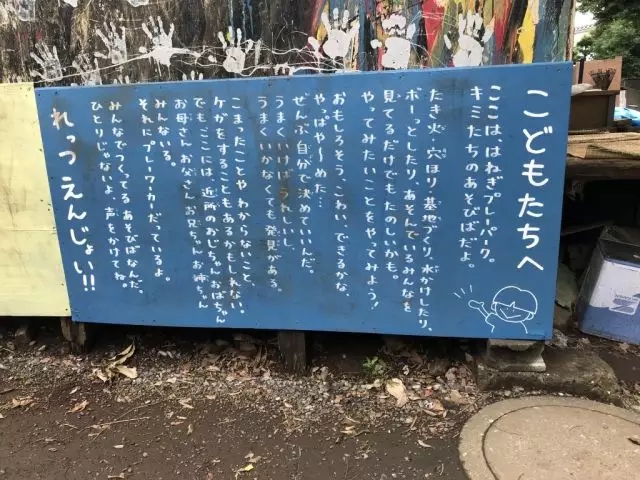 こどもたちへ
ここは はねぎプレーパーク。
キミたちのあそびばだよ。
たき火、穴ほり、基地づくり、水かけしたり、
ボーっとしたり、あそんでいるみんなを
見てるだけでもたのしいかも。
やってみたいことをやってみよう！
おもしろそう、こわい、できるかな、
やっぱや〜めた…
ぜんぶ自分で決めていいんだ。
うまくいけばうれしいし、
うまくいかなくても発見がある。
こまったことや わからないこと、
ケガをすることもあるかもしれない。
でも ここには 近所のおじちゃん おばちゃん
お母さん お父さん お兄ちゃん お姉ちゃん
みんないる。
それにプレーワーカーだっているよ。
みんなでつくってる あそびばなんだ、
ひとりじゃないよ 声をかけてね。
れっつ えんじょい!!